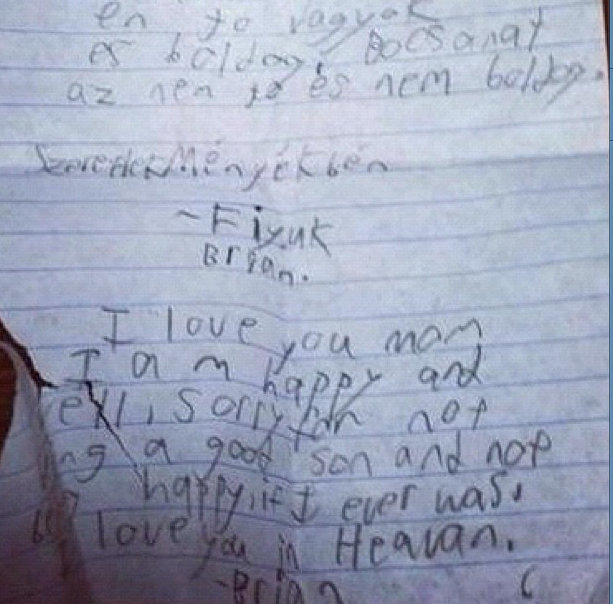 en jo vagyok
es boldog, Bocsanat
az nen jo es nem boldog.
Szeretlek Ményekben
~Fiyuk
Brian.
I love you mom
I am happy and
ell, sorry for not
ng a good son and not
happy, if I ever was.
I love you in Heavan.
~Brian